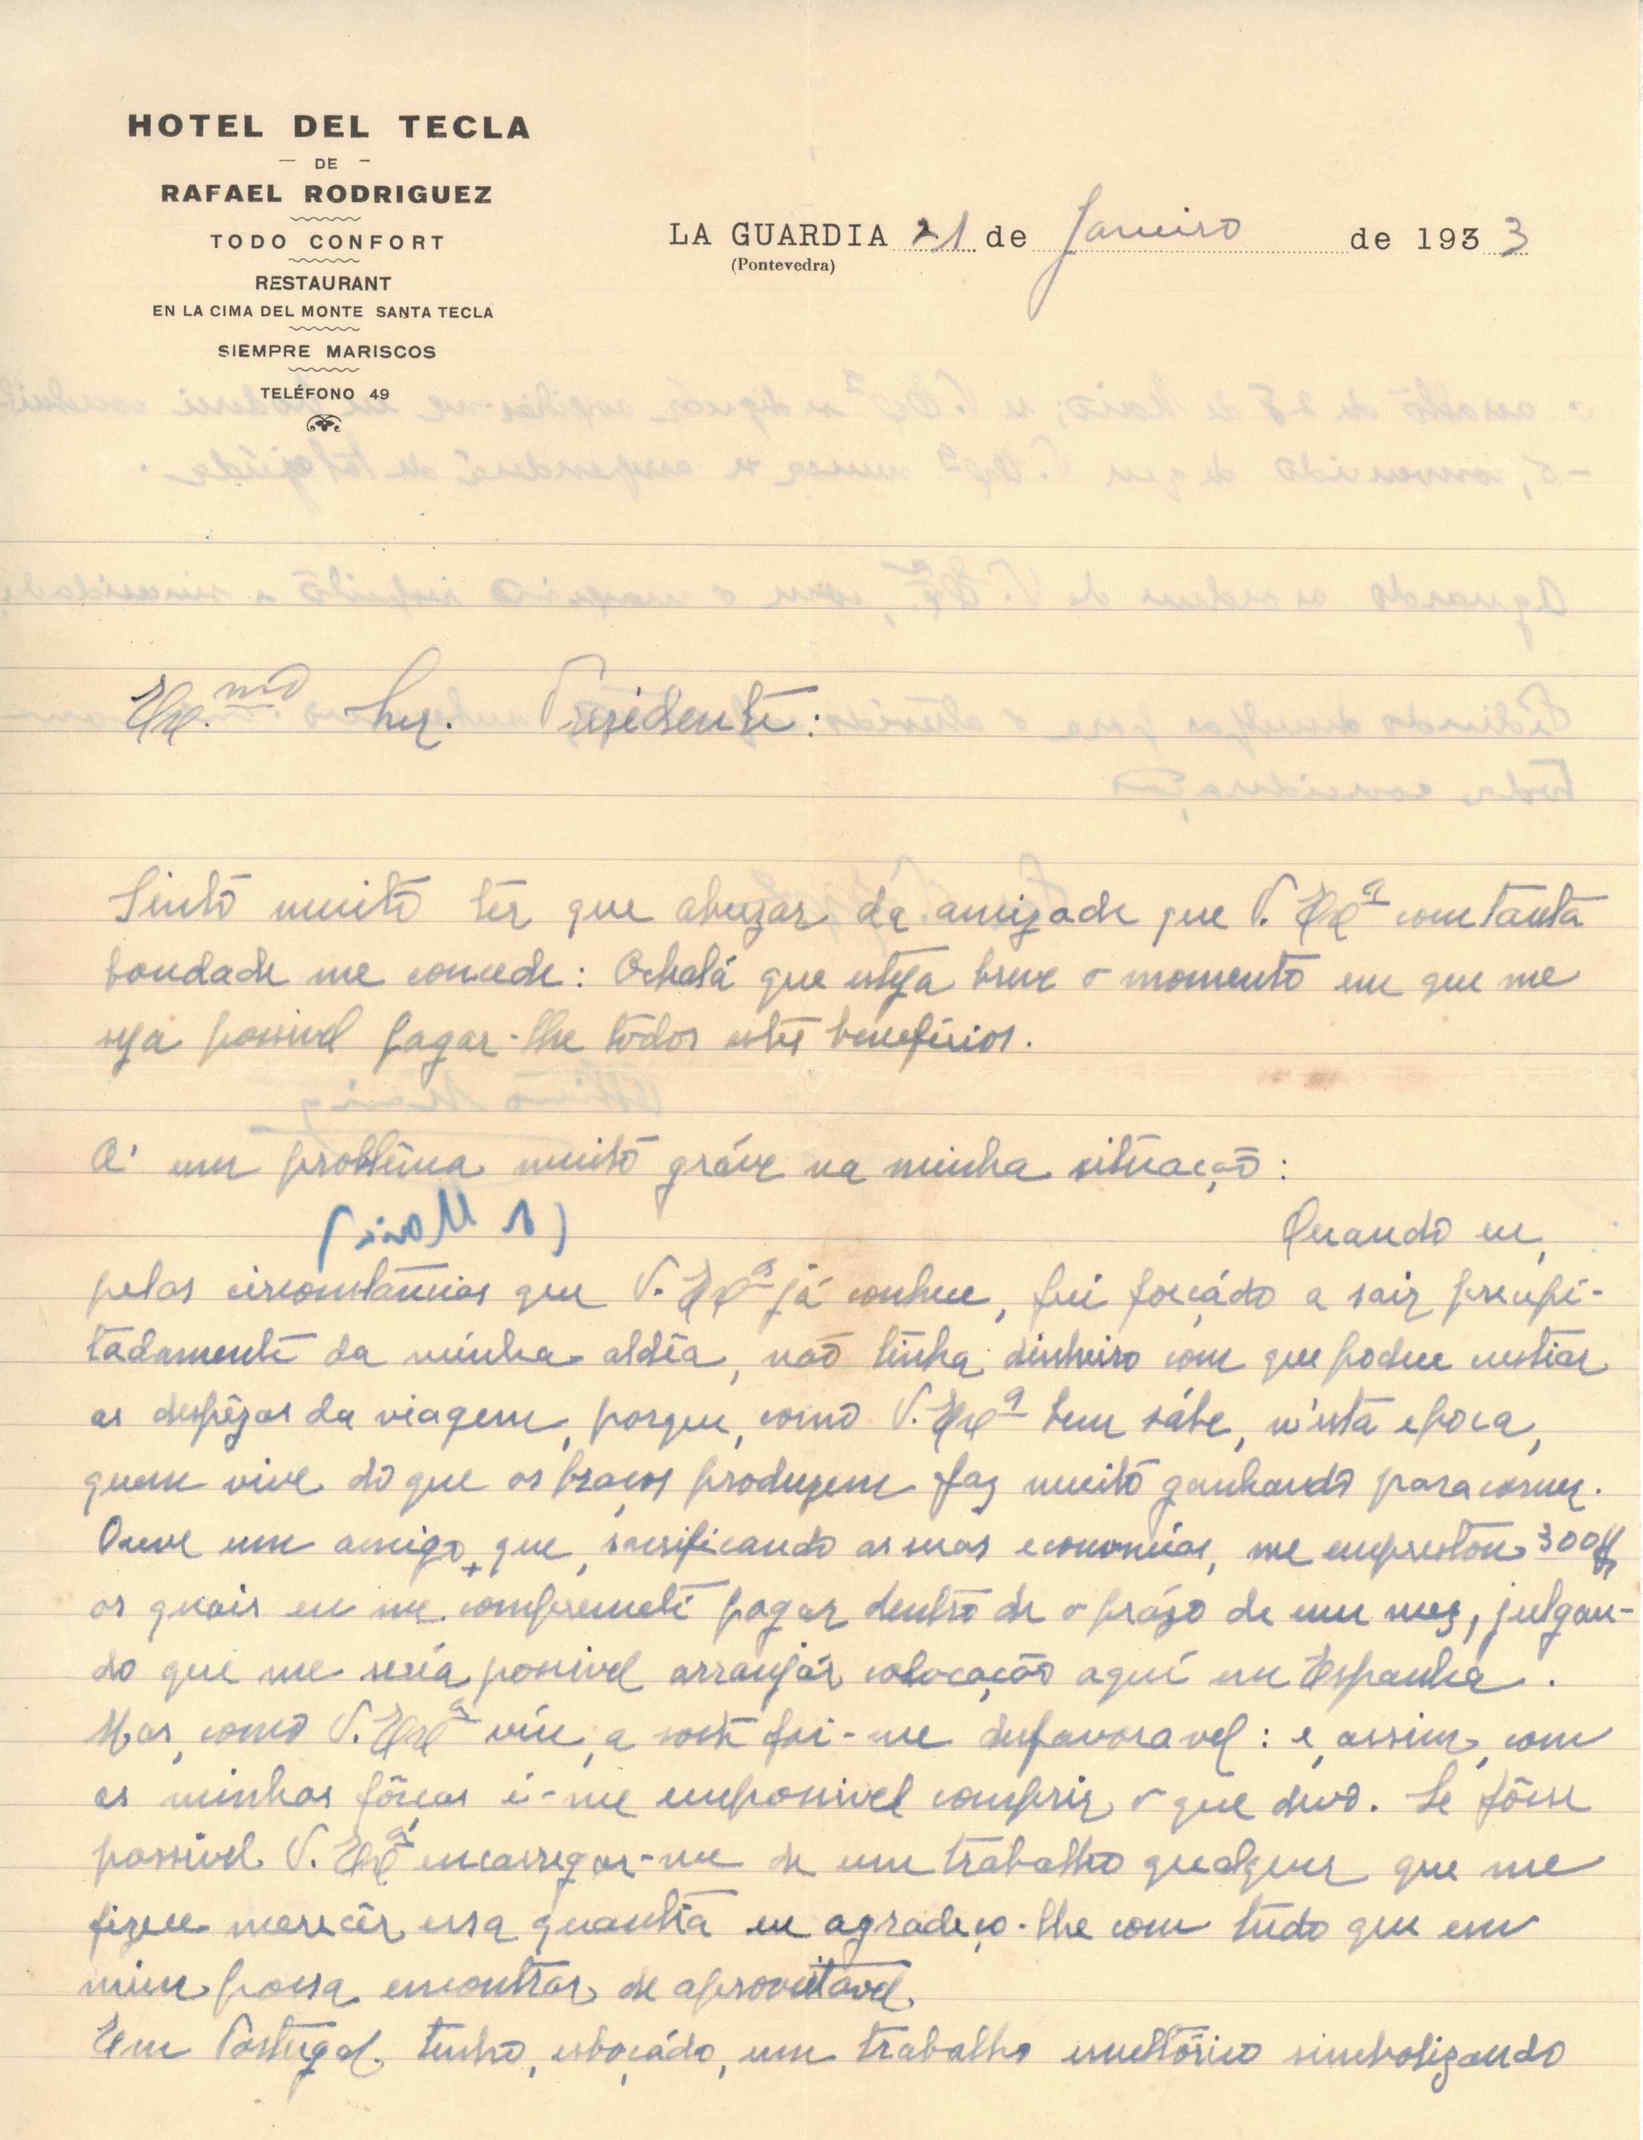 HOTEL DEL TECLA
— DE —
RAFAEL RODRIGUEZ
TODO CONFORT
RESTAURANT
EN LA CIMA DEL MONTE SANTA TECLA
SIEMPRE MARISCOS
TELÉFONO 49
LA GUARDIA 21 de Janeiro de 1933
(Pontevedra)
Exc.mo Snr. Presidente:
Sinto muito ter que abuzar da amizade que V. Exª com tanta
bondade me concede: Ochalá que esteja breve o momento em que me
seja possivel pagar-lhe todos estes beneficios.
A' um problêma muito gráve na minha situação:
Quando eu,
pelas circonstâncias que V. Exª já conhece, fui forçádo a sair precepi-
tadamente da minha aldêa, não tinha dinheiro com que podece custiar
as despêzas da viagem, porque, como V. Exª bem sábe, n'esta epoca,
quem vive do que os braços produzem faz muito ganhando para comer.
Ouve um amigo que, sacrificando as suas economías, me emprestou 300$
os quais eu me compremeti pagar dentro de o prázo de um mez, julgan-
do que me sería possivel arranjár colocação aquí em Espanha.
Mas, como V. Exª viu, a sorte foi-me desfavoravel: e, assim, com
as minhas fôrças é-me empossivel comprir o que devo. Se fôsse
possivel V. Exª encarregar-me de um trabalho qualquer que me
fizece merecêr essa quantia eu agradeço-lhe com tudo que em
mim possa encontrar de aproveitavel.
Em Portugal tenho, esboçádo, um trabalho escultórico simbolizando